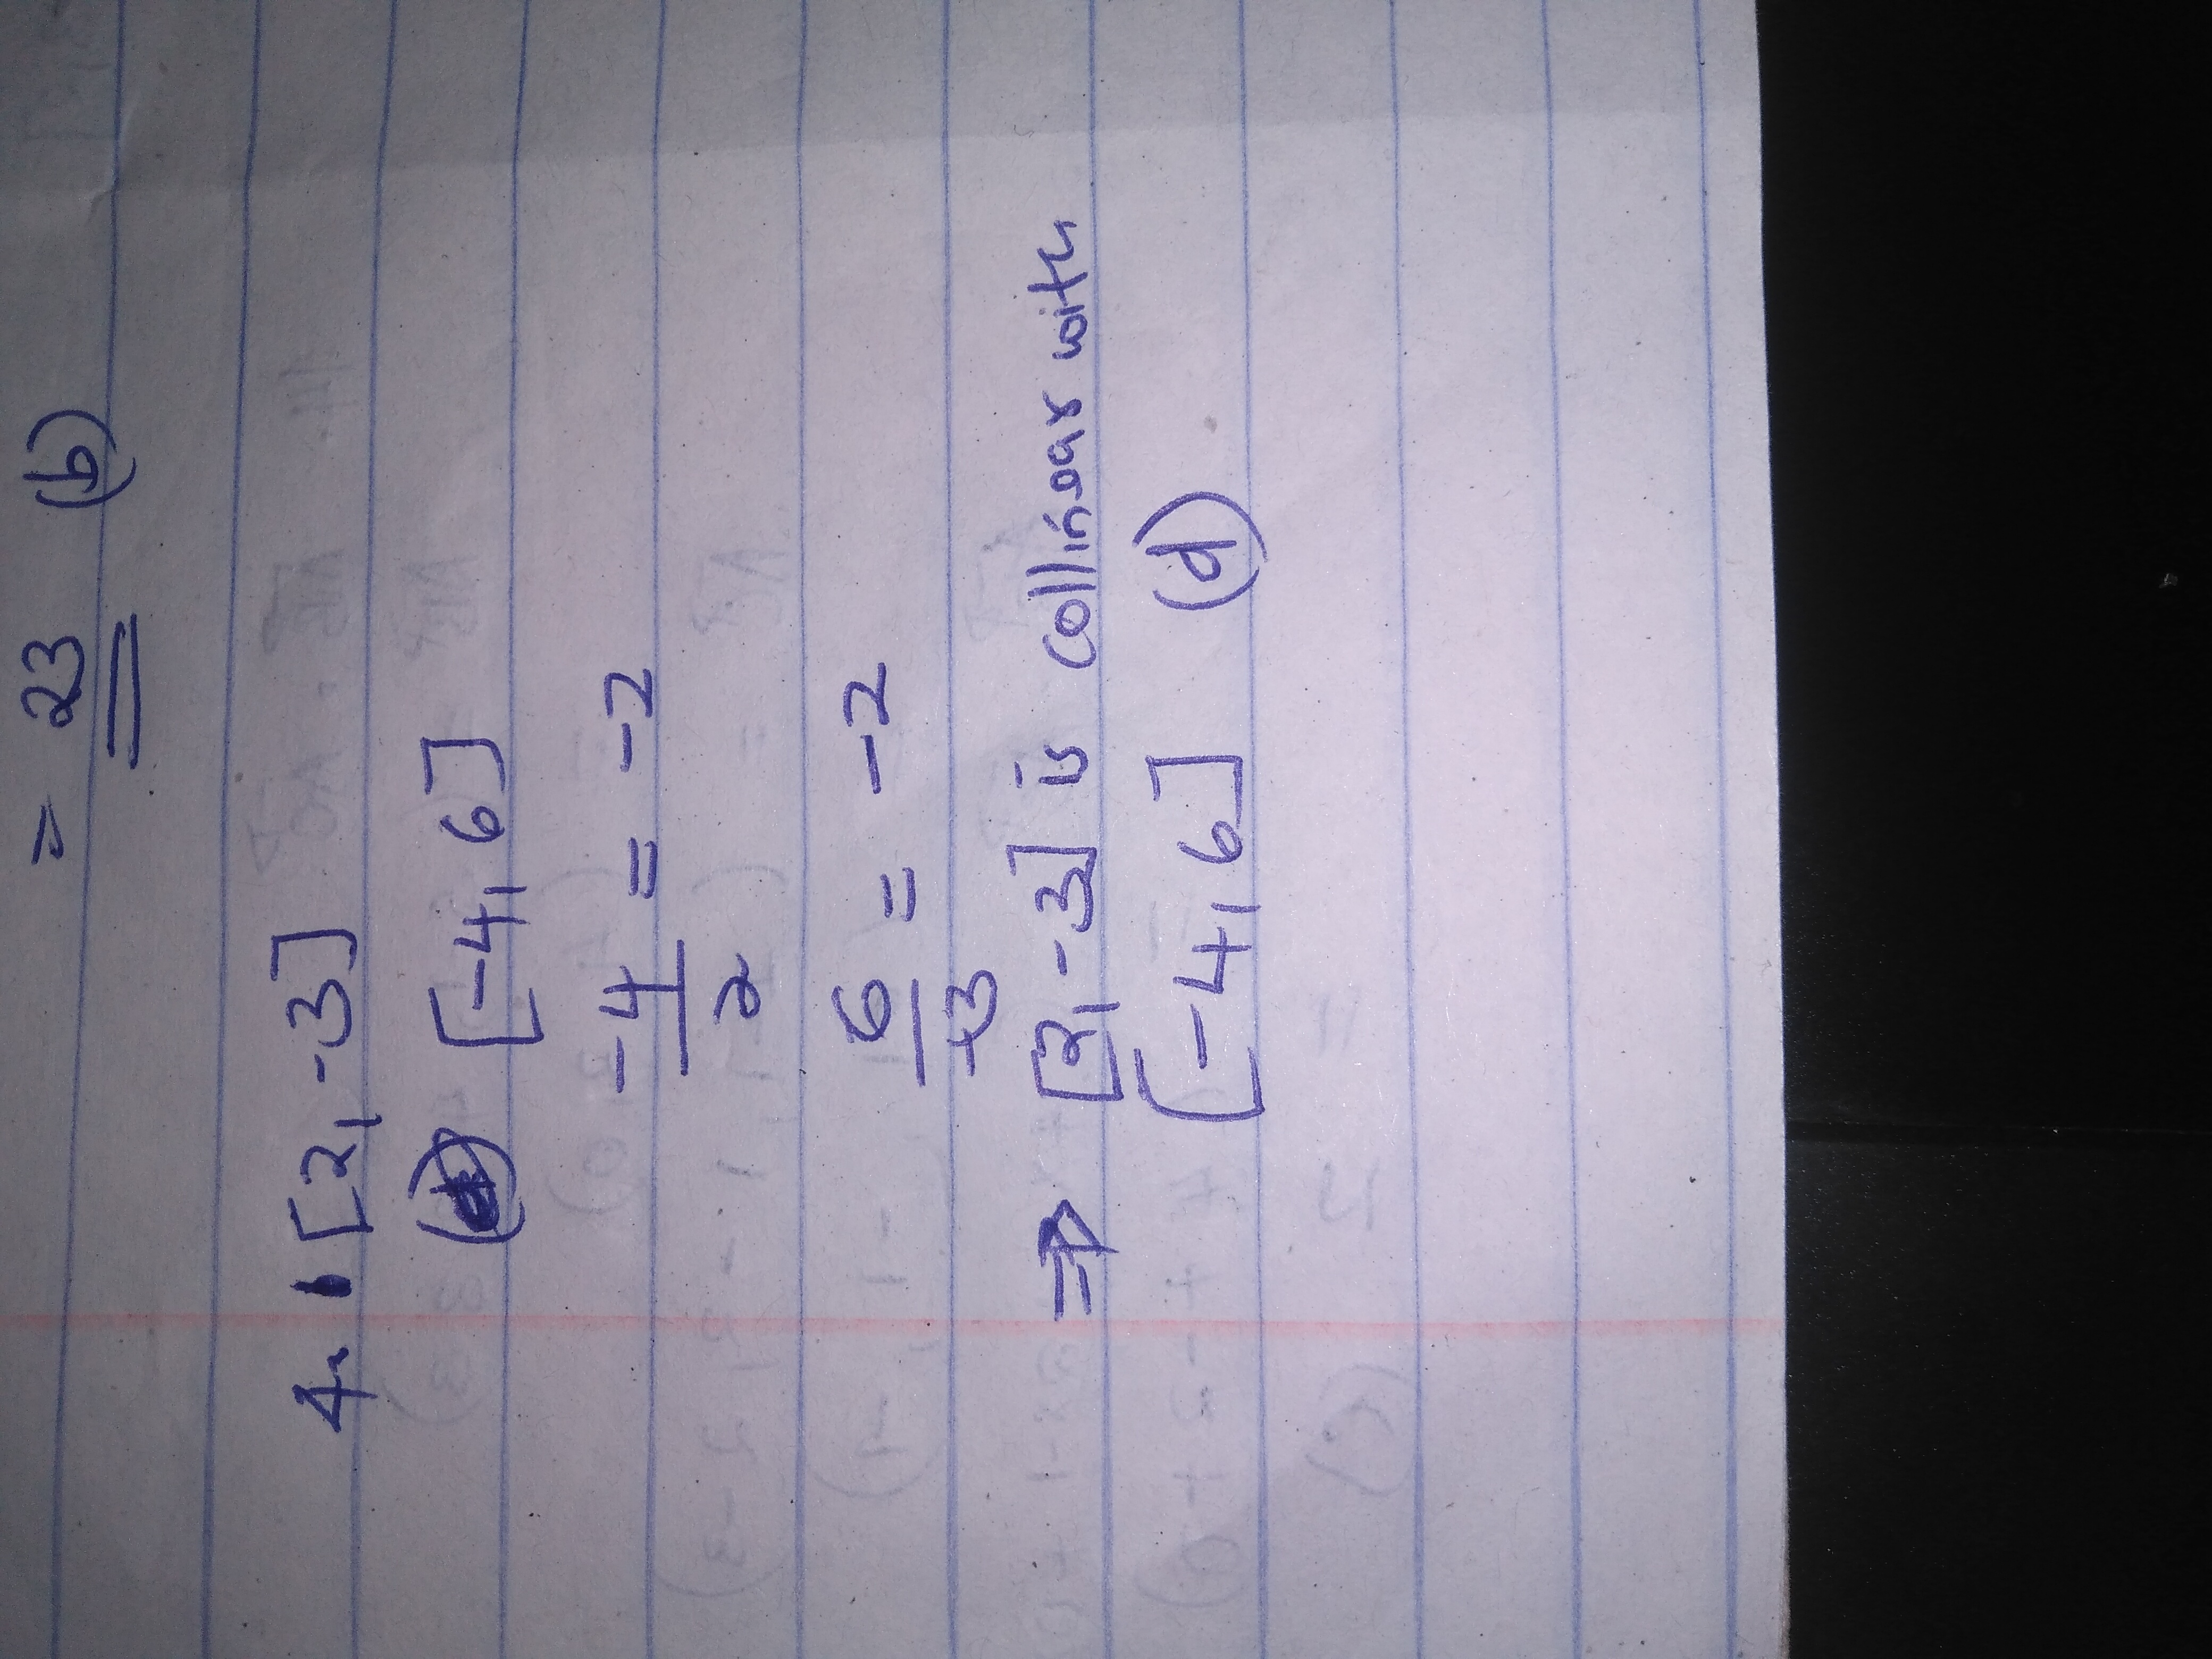 = 23 (b)
4. [2, -3]
[-4, 6]
-4/2 = -2
6/-3 = -2
⇒ [2, -3] is collinear with
[-4, 6] (d)